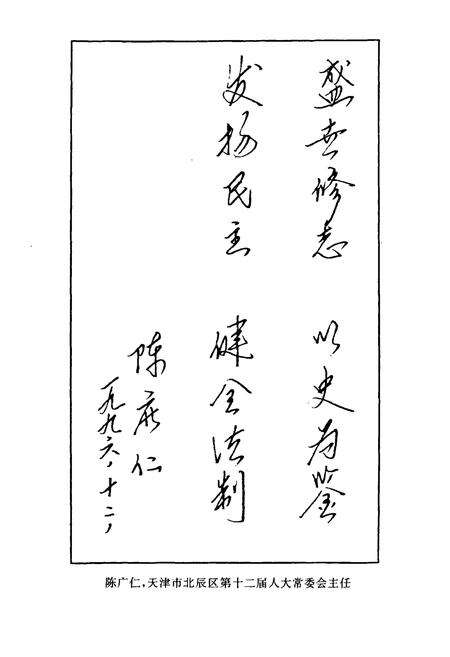 盛世修志 以史为鉴
发扬民主 健全法制
陈广仁
一九九六、十二、
陈广仁,天津市北辰区第十二届人大常委会主任